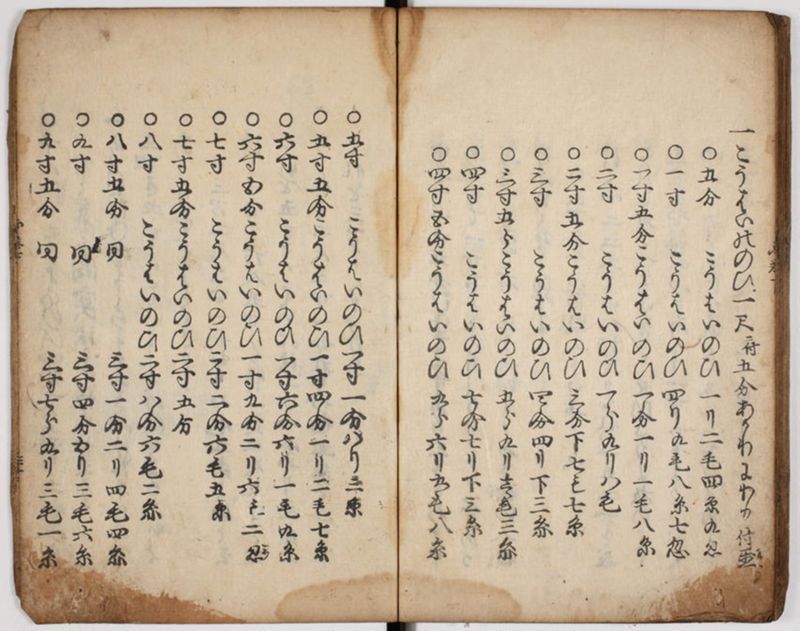 一こうはいのののひ 一尺ニ付五分
〇五分 こうはいのひ 一リ二毛四糸九忽
〇一寸 こうはいのひ 四リ九毛八糸七忽
〇一寸五分こうはいのひ 一分一リ一毛八糸
〇二寸 こうはいのひ 一分九リ八毛
〇二寸五分こうはいのひ 三分下七毛七糸
〇三寸 こうはいのひ 四分四リ下三糸
〇三寸五分こうはいのひ 五分九リ 毛三糸
〇四寸 こうはいのひ 七分七リ下三糸
〇四寸五分こうはいのひ 九分六リ五毛八糸
〇五寸 こうはいのひ 一寸一分八リ三糸
〇五寸五分こうはいのひ 一寸四分一リ二毛七糸
〇六寸 こうはいのひ 一寸六分六リ一毛九糸
〇六寸五分こうはいのひ 一寸九分二リ六毛二忽
〇七寸 こうはいのひ 二寸二分六毛五糸
〇七寸五分こうはいのひ 二寸五分
〇八寸 こうはいのひ 二寸八分六毛二糸
〇八寸五分 同 三寸一分二リ四毛四糸
〇九寸 同 三寸四分五リ三毛六糸
〇九寸五分 同 三寸七分九リ三毛一糸